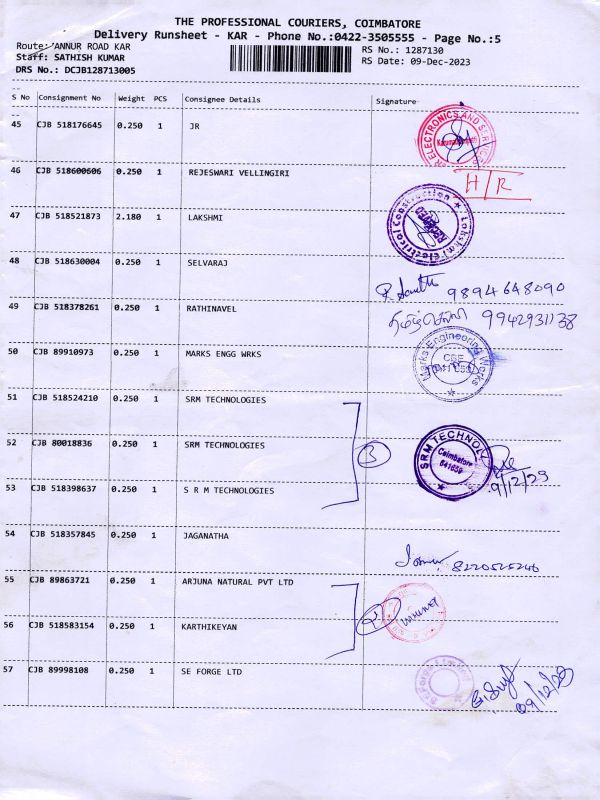 THE PROFESSIONAL COURIERS, COIMBATORE
Delivery Runsheet - KAR - Phone No.:0422-3505555 - Page No.:5
Route: ANNUR ROAD KAR
Staff: SATHISH KUMAR
DRS No.: DCJB128713005
RS No.: 1287130
RS Date: 09-Dec-2023
S No Consignment No Weight PCS Consignee Details Signature
45 CJB 518176645 0.250 1 JR
ELECTRONICS AND
46 CJB 518600606 0.250 1 REJESWARI VELLINGIRI
H/R
47 CJB 518521873 2.180 1 LAKSHMI
Lakshmi Electrical Construction
RECEIVED
48 CJB 518630004 0.250 1 SELVARAJ
9894648090
49 CJB 518378261 0.250 1 RATHINAVEL
தமிழ்செல்வி 9942931138
50 CJB 89910973 0.250 1 MARKS ENGG WRKS
Marks Engineering Works
CBE
51 CJB 518524210 0.250 1 SRM TECHNOLOGIES
52 CJB 80018836 0.250 1 SRM TECHNOLOGIES
3
SRM TECHNOLO
Coimbatore
641659
9/12/23
53 CJB 518398637 0.250 1 S R M TECHNOLOGIES
54 CJB 518357845 0.250 1 JAGANATHA
8220525246
55 CJB 89863721 0.250 1 ARJUNA NATURAL PVT LTD
2
56 CJB 518583154 0.250 1 KARTHIKEYAN
57 CJB 89998108 0.250 1 SE FORGE LTD
09/12/23